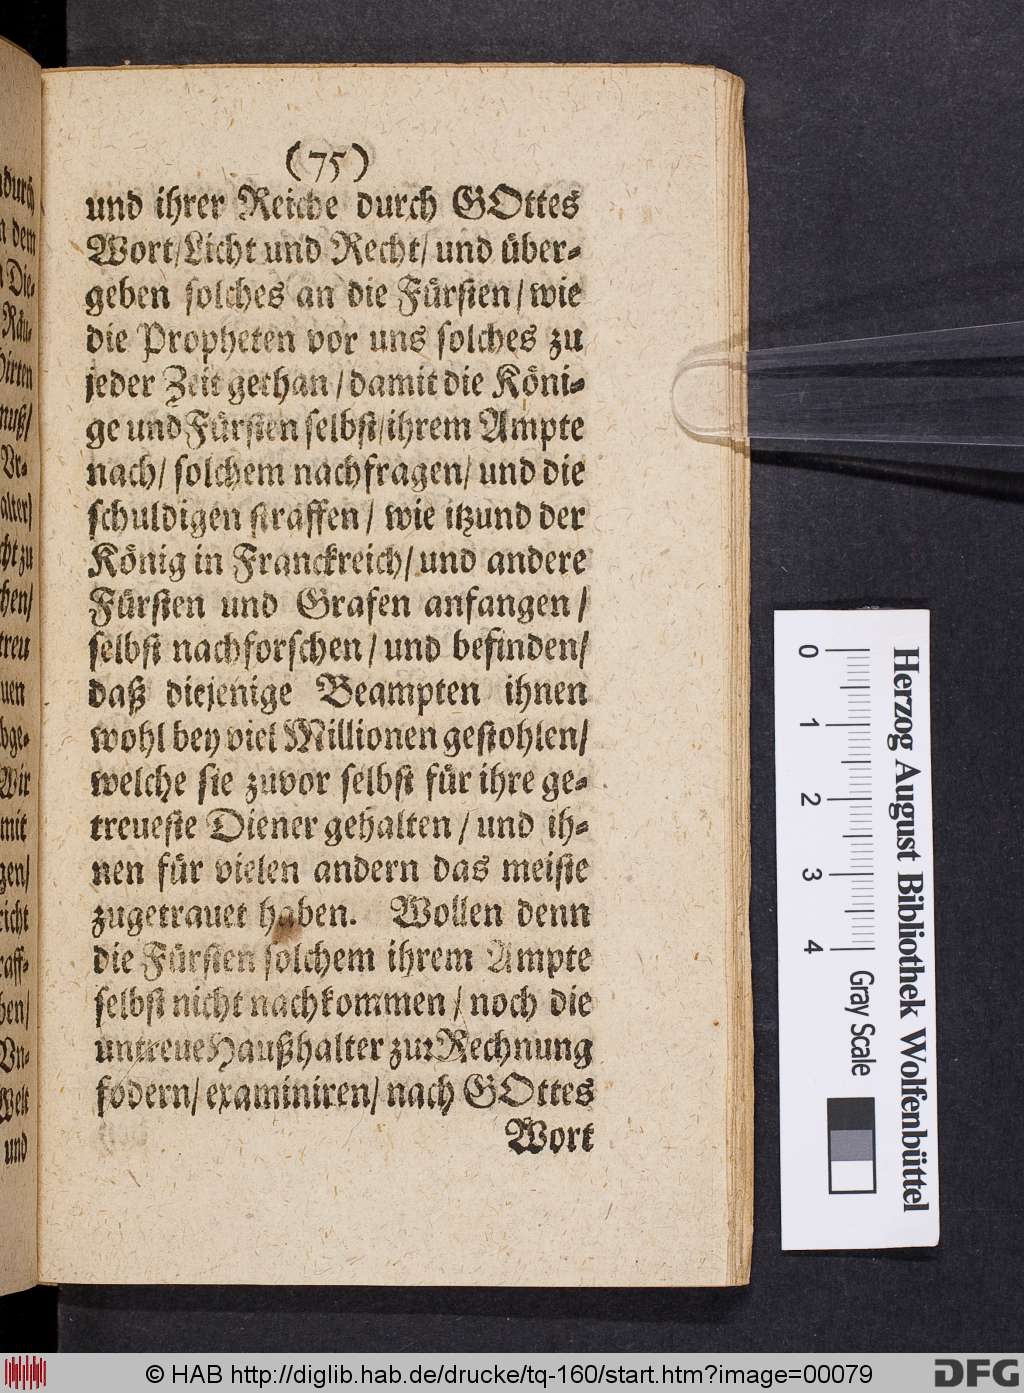 (75)
und ihrer Reiche durch GOttes
Wort/Licht und Recht/ und über-
geben solches an die Fürsten/ wie
die Propheten vor uns solches zu
jeder Zeit gethan/ damit die Köni-
ge und Fürsten selbst/ihrem Ampte
nach/ solchem nachfragen/ und die
schuldigen straffen/ wie itzund der
König in Franckreich/ und andere
Fürsten und Grafen anfangen/
selbst nachforschen/ und befinden/
daß diejenige Beampten ihnen
wohl bey viel Millionen gestohlen/
welche sie zuvor selbst für ihre ge-
treueste Diener gehalten/ und ih-
nen für vielen andern das meiste
zugetrauet haben. Wollen denn
die Fürsten solchem ihrem Ampte
selbst nicht nachkommen/ noch die
untreue Haußhalter zur Rechnung
fodern/ examiniren/ nach GOttes
Wort
dem
Die-
Räu-
Hirten
muß/
Vr-
alter)
cht zu
chen/
treu
uen
bge-
Wir
mit
gen/
richt
raff-
ben/
Vn-
Welt
und
0 1 2 3 4
Gray Scale
Herzog August Bibliothek Wolfenbüttel
© HAB http://diglib.hab.de/drucke/tq-160/start.htm?image=00079
DFG